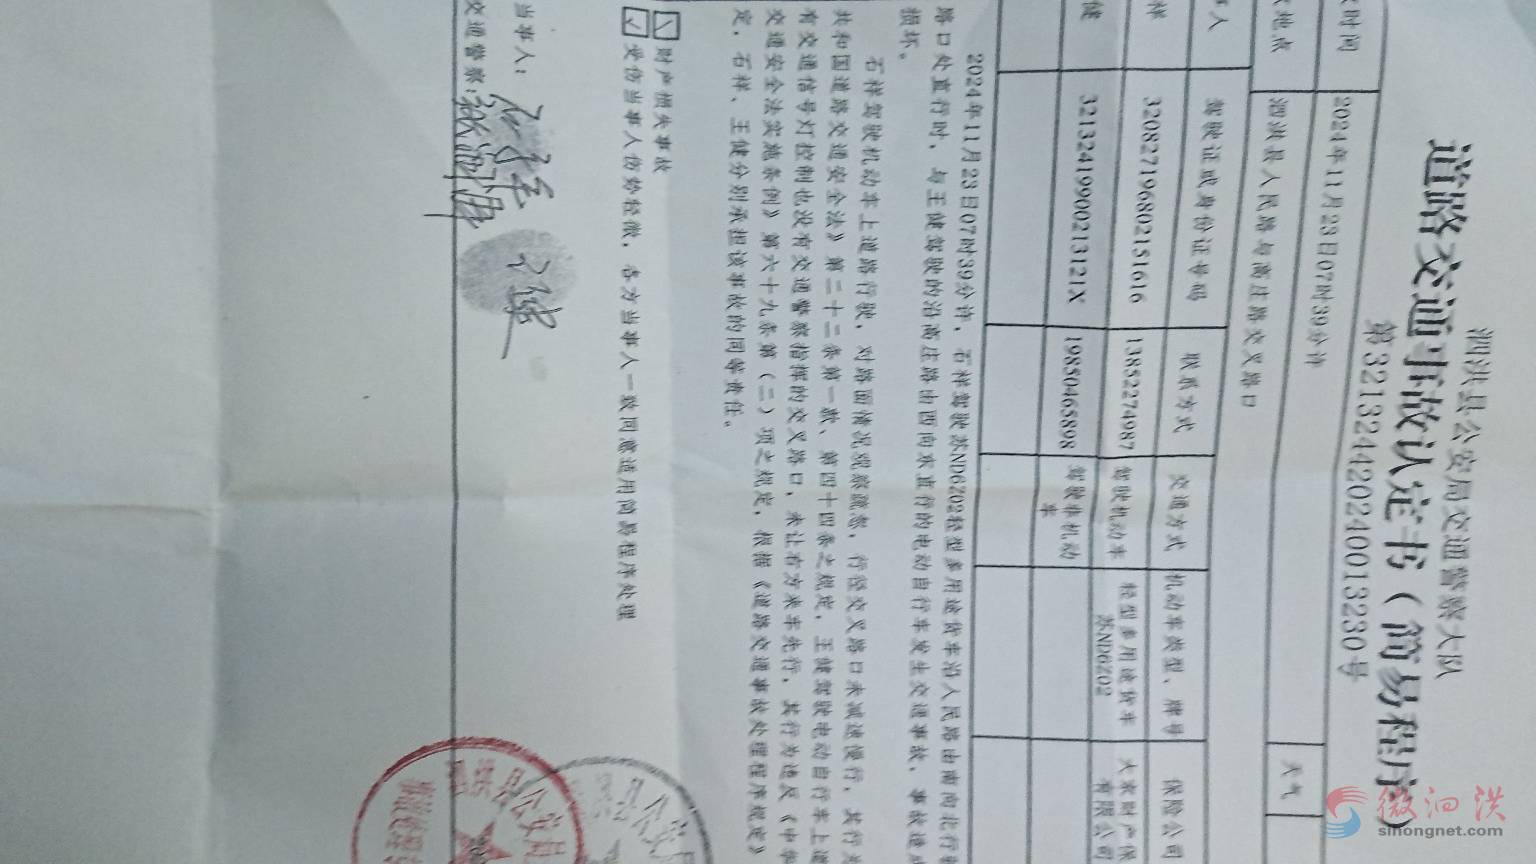 泗洪县公安局交通警察大队
道路交通事故认定书（简易程序）
第3213244202400013230号
时间 2024年11月23日07时39分许 天气
地点 泗洪县人民路与高庄路交叉路口
人 驾驶证或身份证号码 联系方式 交通方式 机动车类型、牌号 保险公司
祥 320827196802151616 13852274987 驾驶机动车 轻型多用途货车 大家财产保
苏ND6Z02 有限公司
健 32132419900213121X 19850465898 驾驶非机动
车
2024年11月23日07时39分许，石祥驾驶苏ND6Z02轻型多用途货车沿人民路由南向北行
路口处直行时，与王健驾驶的沿高庄路由西向东直行的电动自行车发生交通事故，事故造成
损坏。
石祥驾驶机动车上道路行驶，对路面情况观察疏忽，行径交叉路口未减速慢行，其行为
共和国道路交通安全法》第二十二条第一款、第四十四条之规定，王健驾驶电动自行车上道
有交通信号灯控制也没有交通警察指挥的交叉路口，未让右方来车先行，其行为违反《中华
交通安全法实施条例》第六十九条第（二）项之规定，根据《道路交通事故处理程序规定》
定，石祥、王健分别承担该事故的同等责任。
财产损失事故
☑ 受伤当事人伤势轻微，各方当事人一致同意适用简易程序处理
当事人：石祥 王健
交通警察：
县公安局
县公安局
微泗洪
sihongnet.com